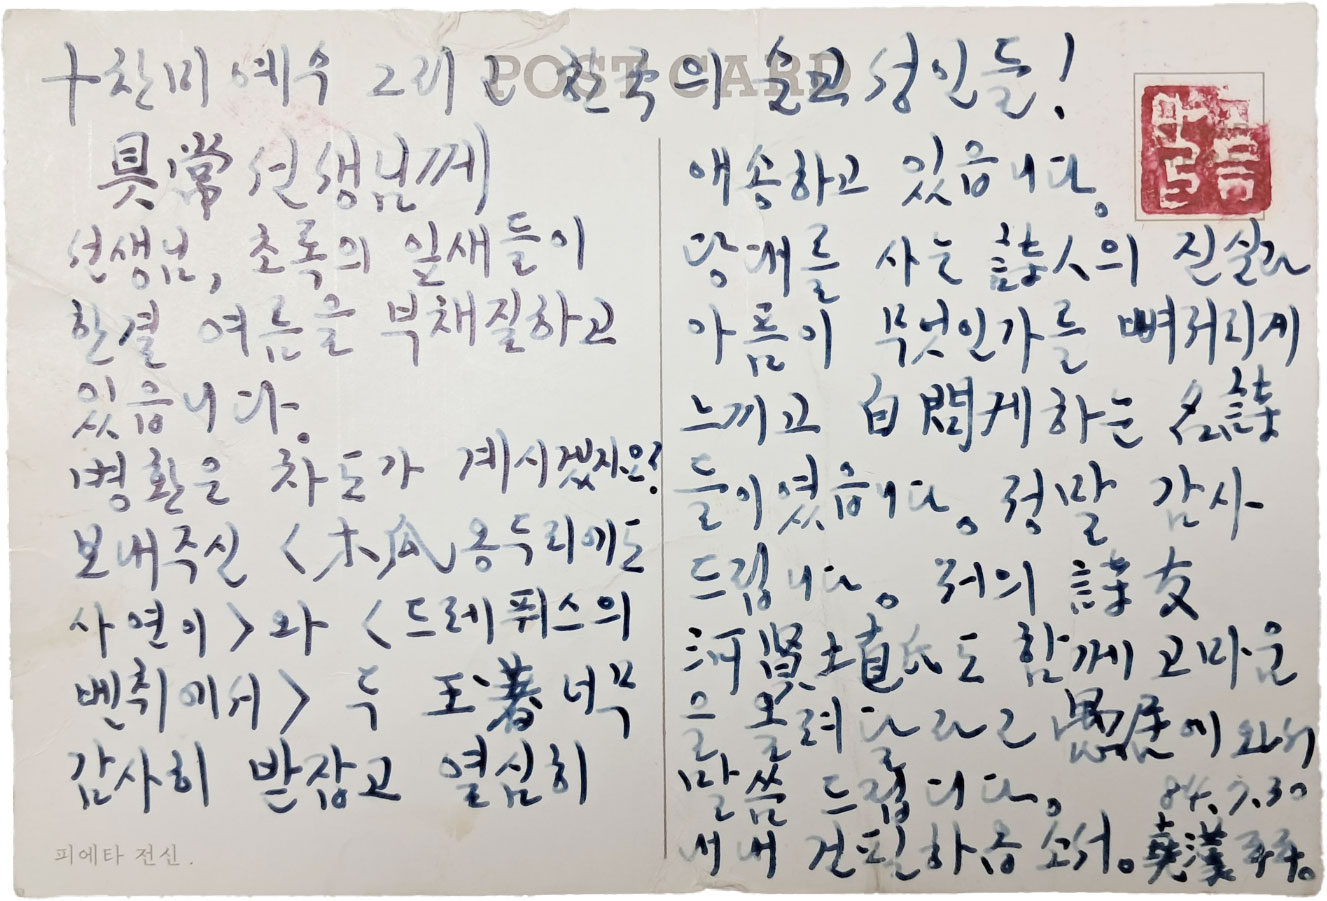 POST CARD
十찬미 예수 그리고 한국의 순교 성인들!
具常 선생님께
선생님, 초록의 잎새들이
한결 여름을 부채질하고
있읍니다.
병환은 차도가 계시겠지요?
보내주신 <木瓜 옹두리에도
사연이>와 <드레퓌스의
벤취에서> 두 玉著 너무
감사히 받잡고 열심히
애송하고 있읍니다.
당대를 사는 詩人의 진실과
아픔이 무엇인가를 뼈저리게
느끼고 自問케하는 名詩
들이였읍니다. 정말 감사
드립니다. 저의 詩友
河賢土直氏도 함께 고마움
을 올려달라고 愚居에 와서
말씀 드립디다. 84. 7. 30
내내 건필하옵소서. 堯漢
피에타 전신.